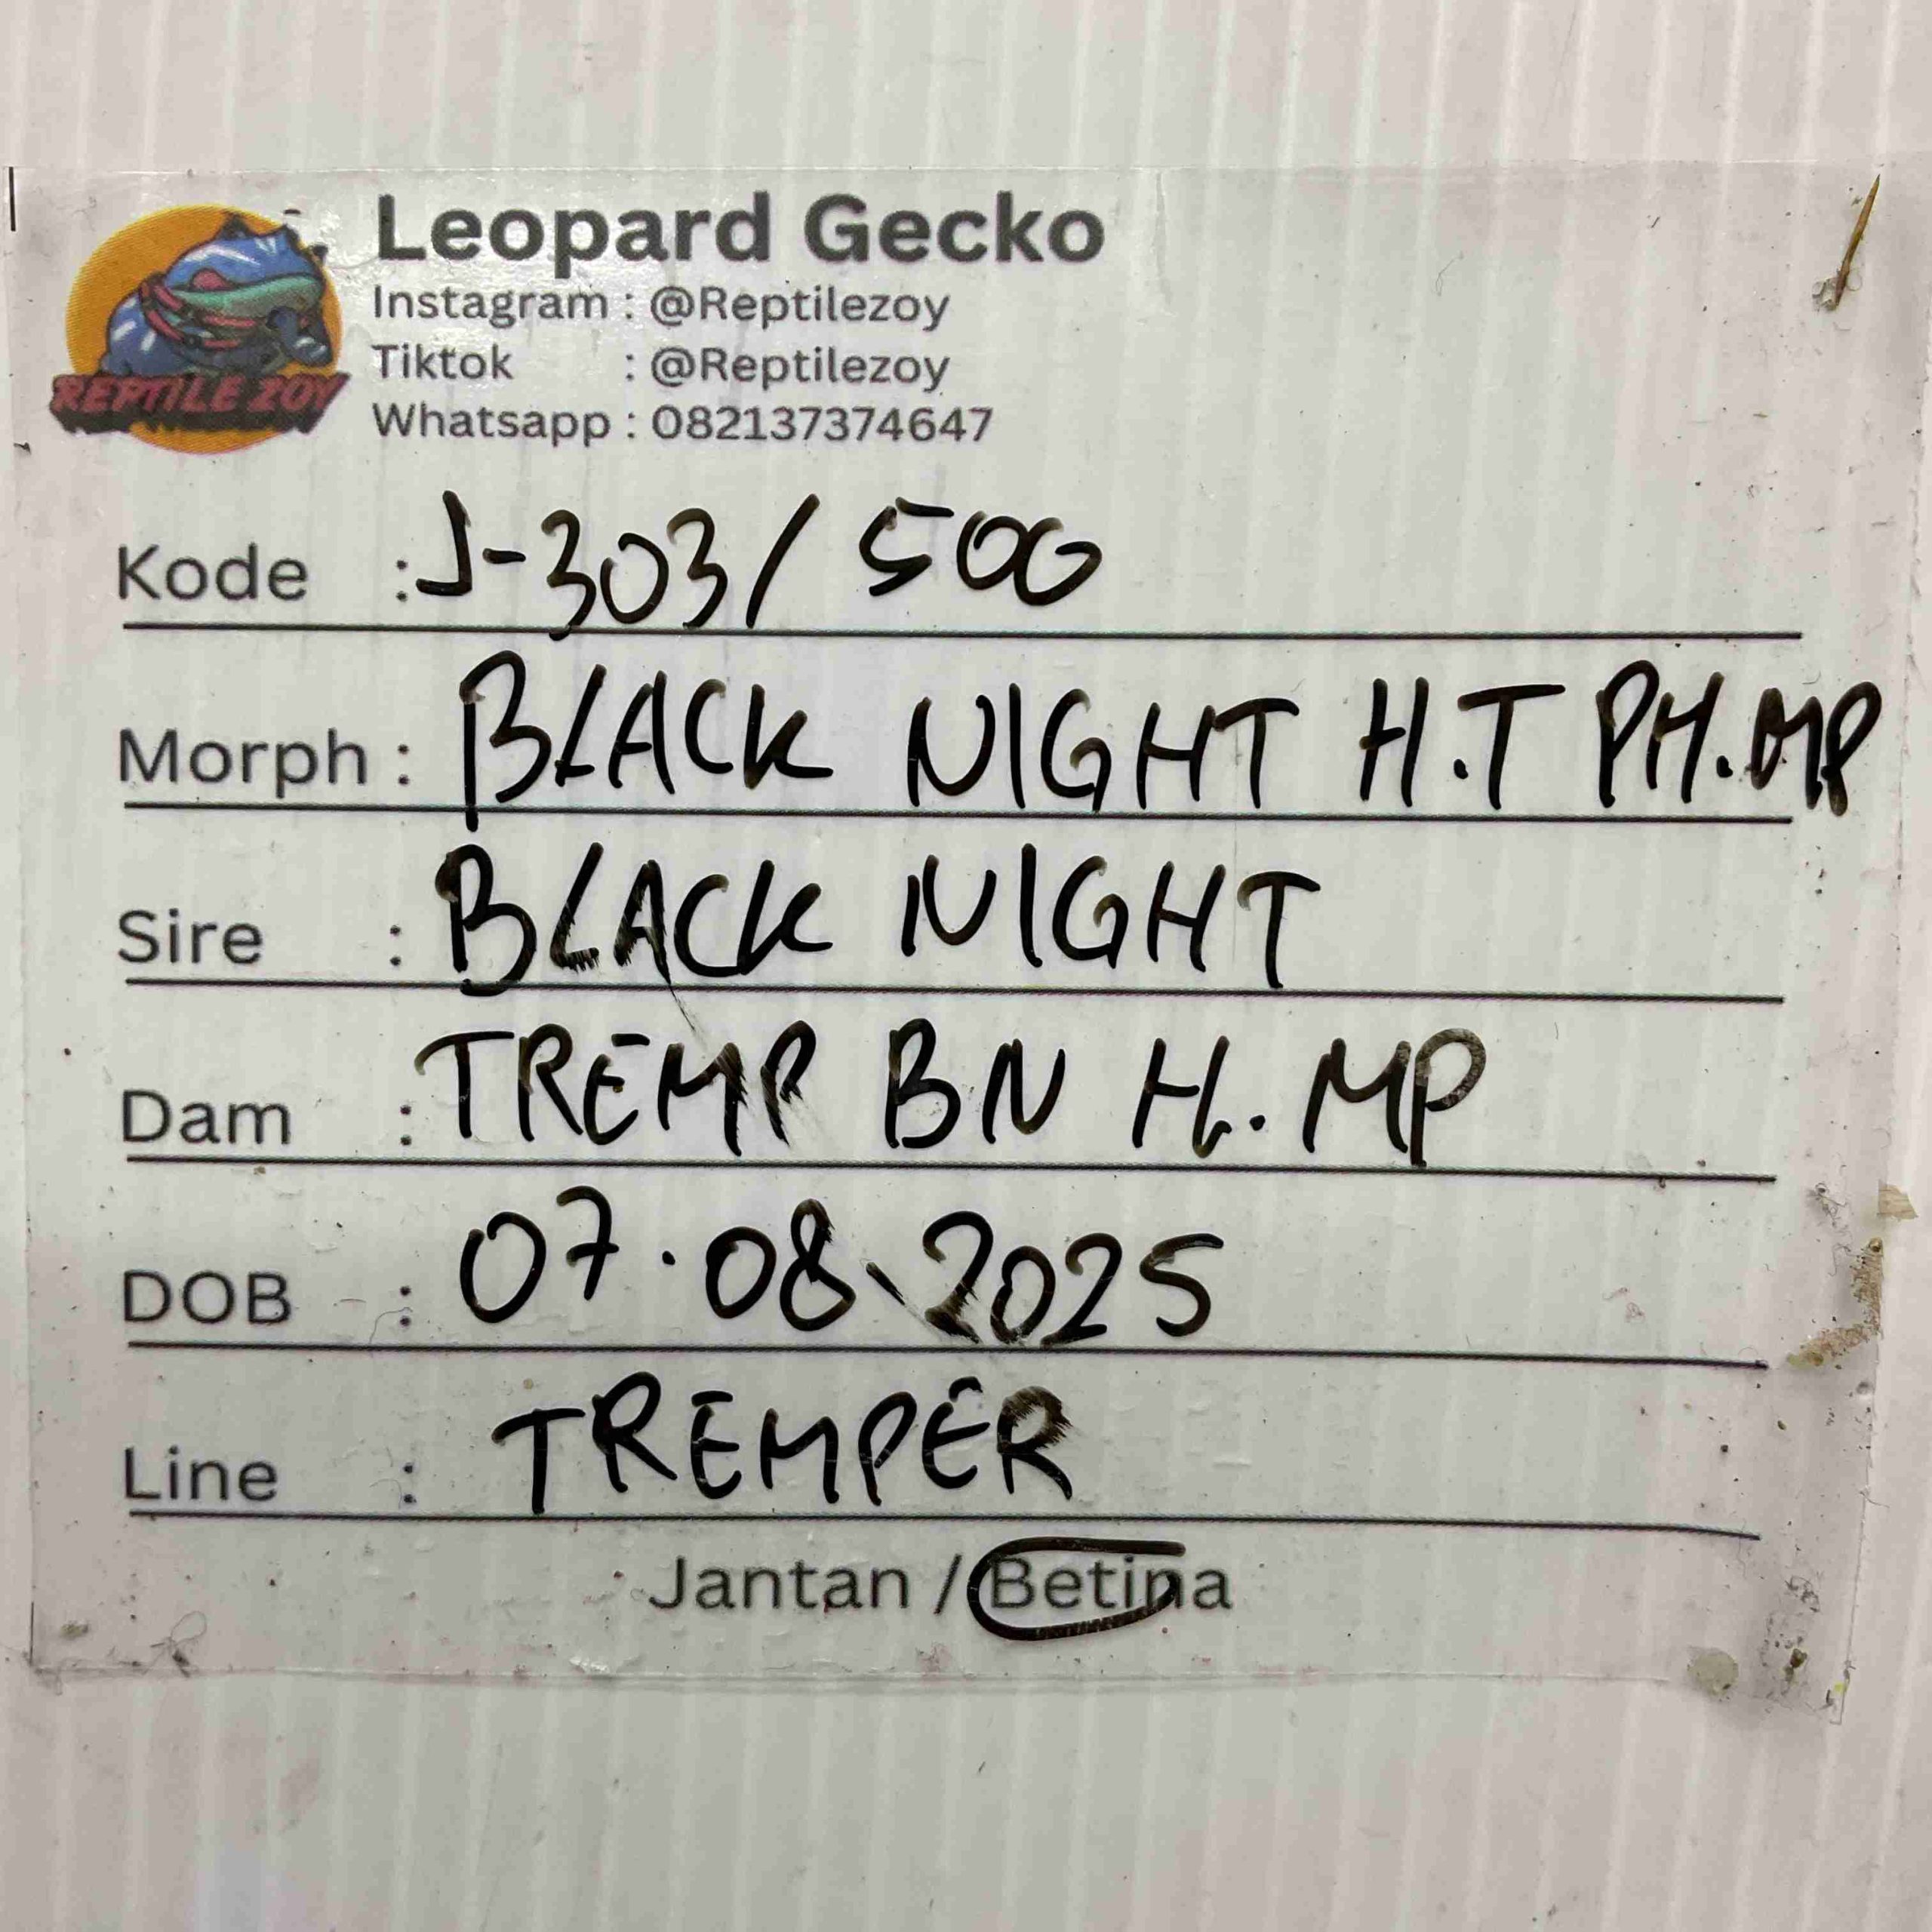 REPTILE ZOY
Leopard Gecko
Instagram : @Reptilezoy
Tiktok : @Reptilezoy
Whatsapp : 082137374647
Kode : J-303/ 500
Morph : BLACK NIGHT H.T PH.MP
Sire : BLACK NIGHT
Dam : TREMP BN H. MP
DOB : 07.08.2025
Line : TREMPER
Jantan / Betina